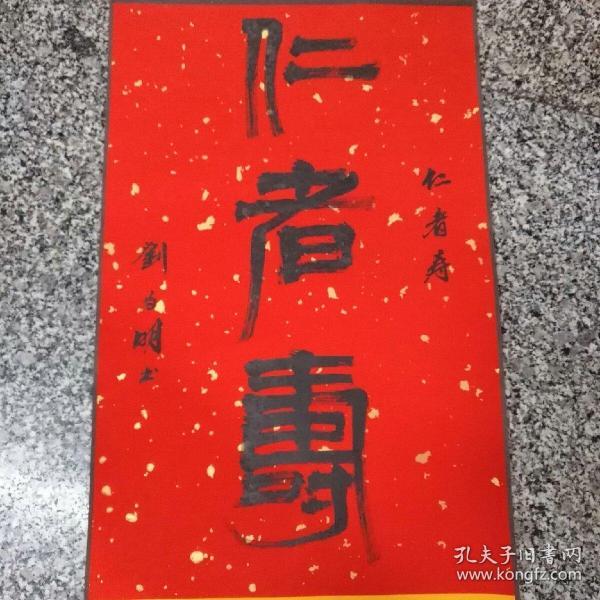 仁者壽
仁者寿
劉文明书
孔夫子旧书网
www.kongfz.com